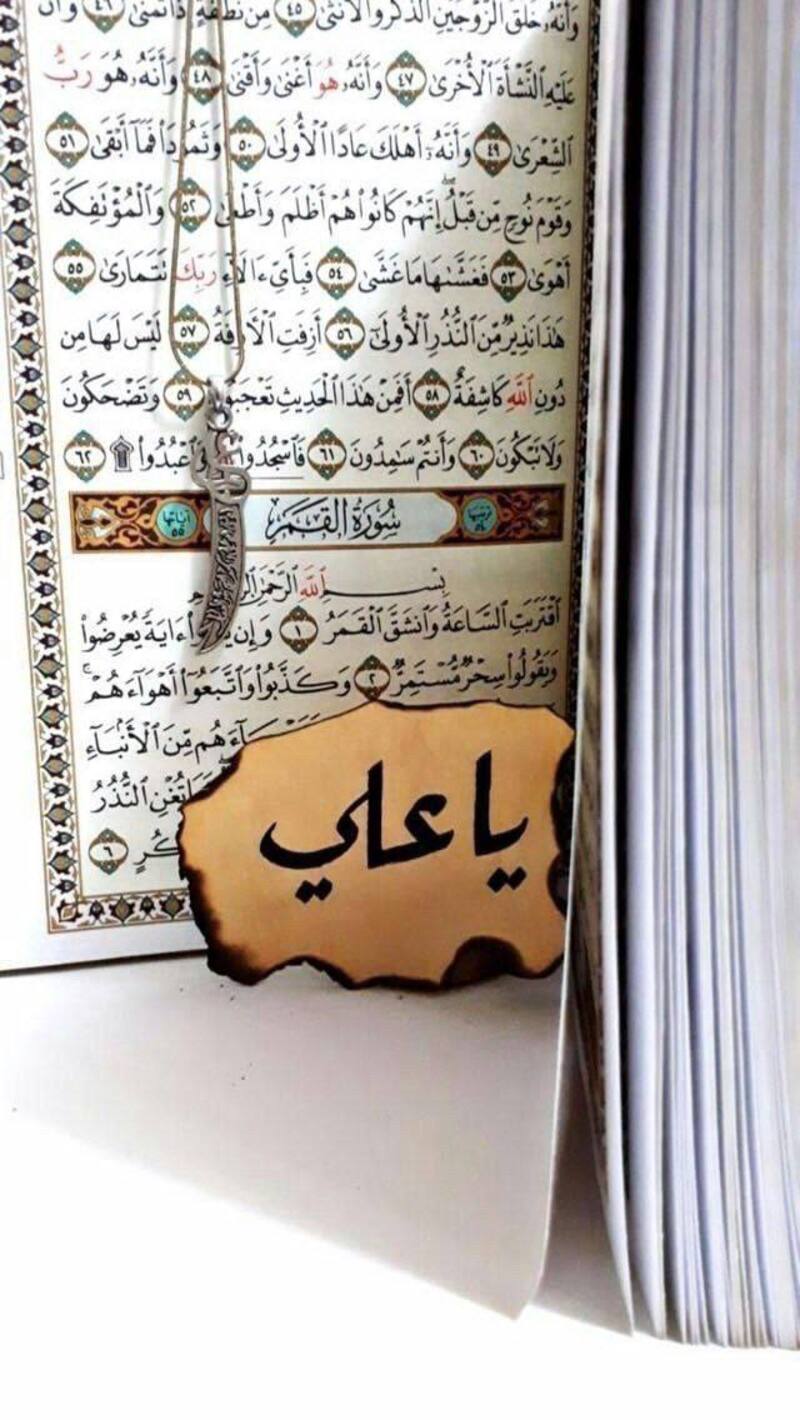 وَأَنَّهُۥ خَلَقَ ٱلزَّوْجَيْنِ ٱلذَّكَرَ وَٱلْأُنثَىٰ ٤٥ مِن نُّطْفَةٍ إِذَا تُمْنَىٰ ٤٦ وَأَنَّ
عَلَيْهِ ٱلنَّشْأَةَ ٱلْأُخْرَىٰ ٤٧ وَأَنَّهُۥ هُوَ أَغْنَىٰ وَأَقْنَىٰ ٤٨ وَأَنَّهُۥ هُوَ رَبُّ
ٱلشِّعْرَىٰ ٤٩ وَأَنَّهُۥٓ أَهْلَكَ عَادًا ٱلْأُولَىٰ ٥٠ وَثَمُودَا۟ فَمَآ أَبْقَىٰ ٥١
وَقَوْمَ نُوحٍ مِّن قَبْلُ ۖ إِنَّهُمْ كَانُوا۟ هُمْ أَظْلَمَ وَأَطْغَىٰ ٥٢ وَٱلْمُؤْتَفِكَةَ
أَهْوَىٰ ٥٣ فَغَشَّىٰهَا مَا غَشَّىٰ ٥٤ فَبِأَىِّ ءَالَآءِ رَبِّكَ تَتَمَارَىٰ ٥٥
هَٰذَا نَذِيرٌ مِّنَ ٱلنُّذُرِ ٱلْأُولَىٰٓ ٥٦ أَزِفَتِ ٱلْءَازِفَةُ ٥٧ لَيْسَ لَهَا مِن
دُونِ ٱللَّهِ كَاشِفَةٌ ٥٨ أَفَمِنْ هَٰذَا ٱلْحَدِيثِ تَعْجَبُونَ ٥٩ وَتَضْحَكُونَ
وَلَا تَبْكُونَ ٦٠ وَأَنتُمْ سَٰمِدُونَ ٦١ فَٱسْجُدُوا۟ لِلَّهِ وَٱعْبُدُوا۟ ۩ ٦٢
ترتيبها ٥٤ سُورَةُ القَمَرِ آياتها ٥٥
بِسْمِ ٱللَّهِ ٱلرَّحْمَٰنِ
ٱقْتَرَبَتِ ٱلسَّاعَةُ وَٱنشَقَّ ٱلْقَمَرُ ١ وَإِن ءَايَةً يُعْرِضُوا۟
وَيَقُولُوا۟ سِحْرٌ مُّسْتَمِرٌّ ٢ وَكَذَّبُوا۟ وَٱتَّبَعُوٓا۟ أَهْوَآءَهُمْ ۚ
مِّنَ ٱلْأَنۢبَآءِ
تُغْنِ ٱلنُّذُرُ
٦
يا علي